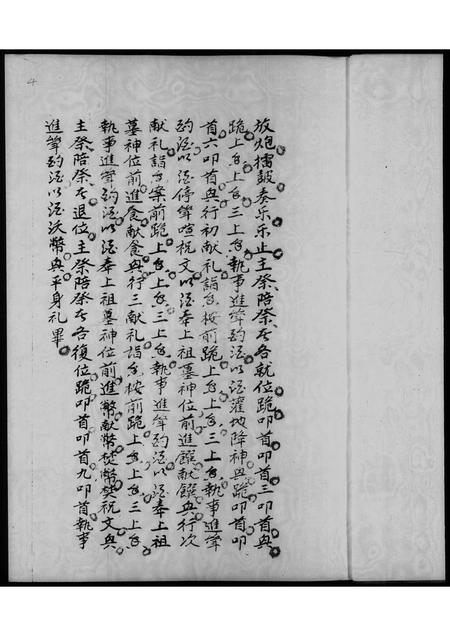 4
放炮擂鼓奏乐乐止主祭陪祭者各就位跪叩首叩首三叩首興
跪上香上香三上香執事進斝酌酒以酒灌地降神興跪叩首叩
首六叩首興行初献礼詣香按前跪上香上香三上香執事進斝
酌酒以酒停斝喧祝文以酒奉上祖墓神位前進饌献饌興行次
献礼詣香案前跪上香上香三上香執事進斝酌酒以酒奉上祖
墓神位前進食献食興行三献礼詣香按前跪上香上香三上香
執事進斝酌酒以酒奉上祖墓神位前進幣献幣焚幣焚祝文興
主祭陪祭者退位主祭陪祭者各復位跪叩首叩首九叩首執事
進斝酌酒以酒沃幣興平身礼畢